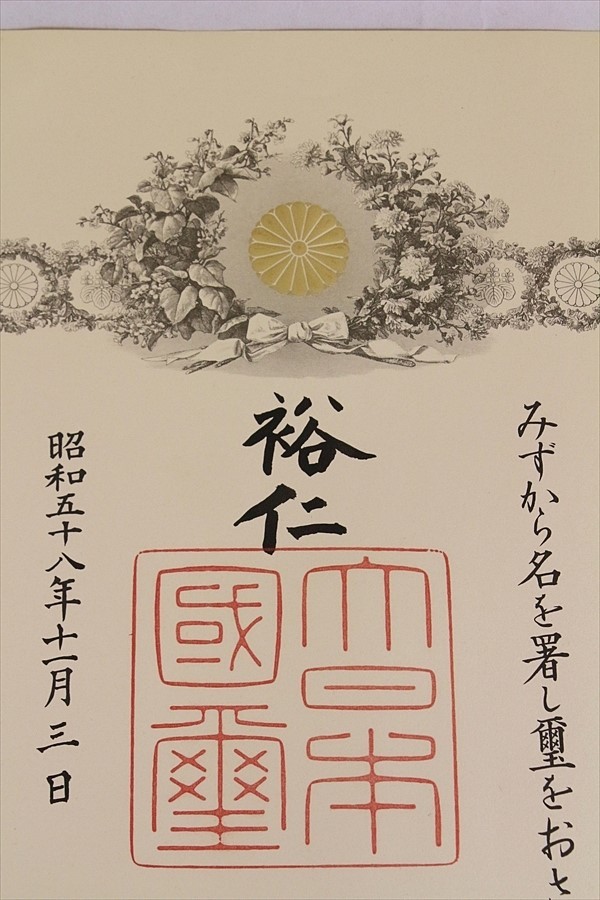 みずから名を署し璽をおさ
裕仁
大日本
國璽
昭和五十八年十一月三日